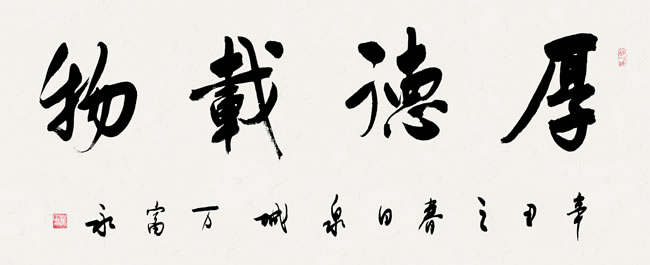 厚德載物
辛丑之春日泉城万富永